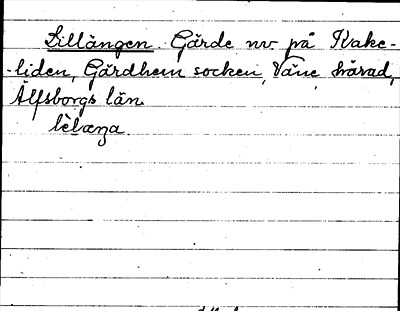 Lillängen. Gärde nv. på Kvake-
-liden, Gärdhem socken, Väne härad,
Älfsborgs län.
lèlæŋa.